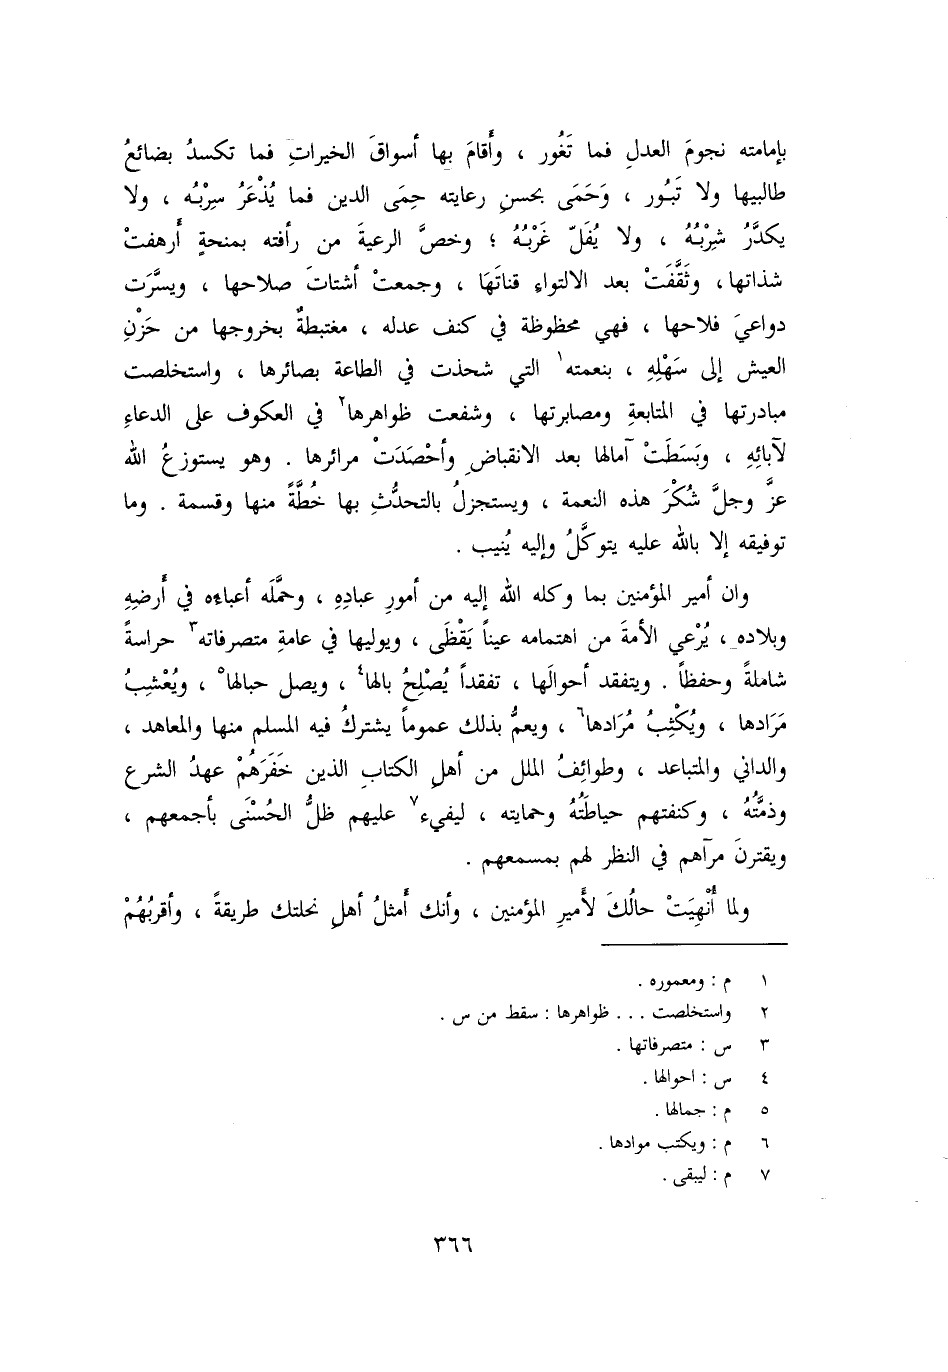 بإمامته نجومَ العدلِ فما تَغُور ، وأَقامَ بها أسواقَ الخيراتِ فما تكسدُ بضائعُ
طالبيها ولا تَبُور ، وَحَمَى بحسنِ رعايته حِمَى الدين فما يُذْعَرُ سِرْبُه ، ولا
يكدَّرُ شِرْبُهُ ، ولا يُفَلّ غَرْبُهُ ؛ وخصَّ الرعيةَ من رأفته بمنحةٍ أَرهفتْ
شذاتها، وثَقَّفَتْ بعد الالتواءِ قناتَهَا ، وجمعتْ أشتاتَ صلاحها ، ويسَّرَت
دواعيَ فلاحها ، فهي محظوظة في كنف عدله ، مغتبطةٌ بخروجها من حَزْنِ
العيش إلى سَهْلِهِ ، بنعمته١ التي شحذت في الطاعة بصائرها ، واستخلصت
مبادرتها في المتابعةِ ومصابرتها ، وشفعت ظواهرها٢ في العكوف على الدعاءِ
لآبائِهِ ، وبَسَطَتْ آمالها بعد الانقباضِ وأحْصَدَتْ مرائرها . وهو يستوزعُ الله
عزَّ وجلَّ شُكْرَ هذه النعمة ، ويستجزلُ بالتحدُّثِ بها خُطَّةً منها وقسمة . وما
توفيقه إلا بالله عليه يتوكَّلُ وإليه يُنيب .
وان أمير المؤمنين بما وكله الله إليه من أمورِ عبادِهِ ، وحمَّلَه أعباءه في أَرضِهِ
وبلاده ، يُرْعي الأمةَ من اهتمامه عيناً يَقْظَى ، ويوليها في عامةِ متصرفاته٣ حراسةً
شاملةً وحفظاً . ويتفقد أحوالَها ، تفقداً يُصْلِحُ بالها٤ ، ويصل حبالها٥ ، ويُعْشِبُ
مَرَادها ، ويُكْثِبُ مُرَادها٦ ، ويعمُّ بذلك عموماً يشتركُ فيه المسلم منها والمعاهد ،
والداني والمتباعد ، وطوائِفُ الملل من أهلِ الكتابِ الذين خَفَرَهُمْ عهدُ الشرع
وذمَّتُهُ ، وكنفتهم حياطَتُهُ وحمايته ، ليفيء٧ عليهم ظلُّ الحُسْنَى بأجمعهم ،
ويقترنَ مرآهم في النظر لهم بمسمعهم .
ولما أُنْهِيَتْ حالُكَ لأَميرِ المؤمنين ، وأنك أَمثلُ أهلِ نحلتك طريقةً ، وأقربُهُمْ
١ م : ومعموره .
٢ واستخلصت ... ظواهرها : سقط من س .
٣ س : متصرفاتها .
٤ س : احوالها .
٥ م : جمالها .
٦ م : ويكتب موادها .
٧ م : ليبقى .
٣٦٦